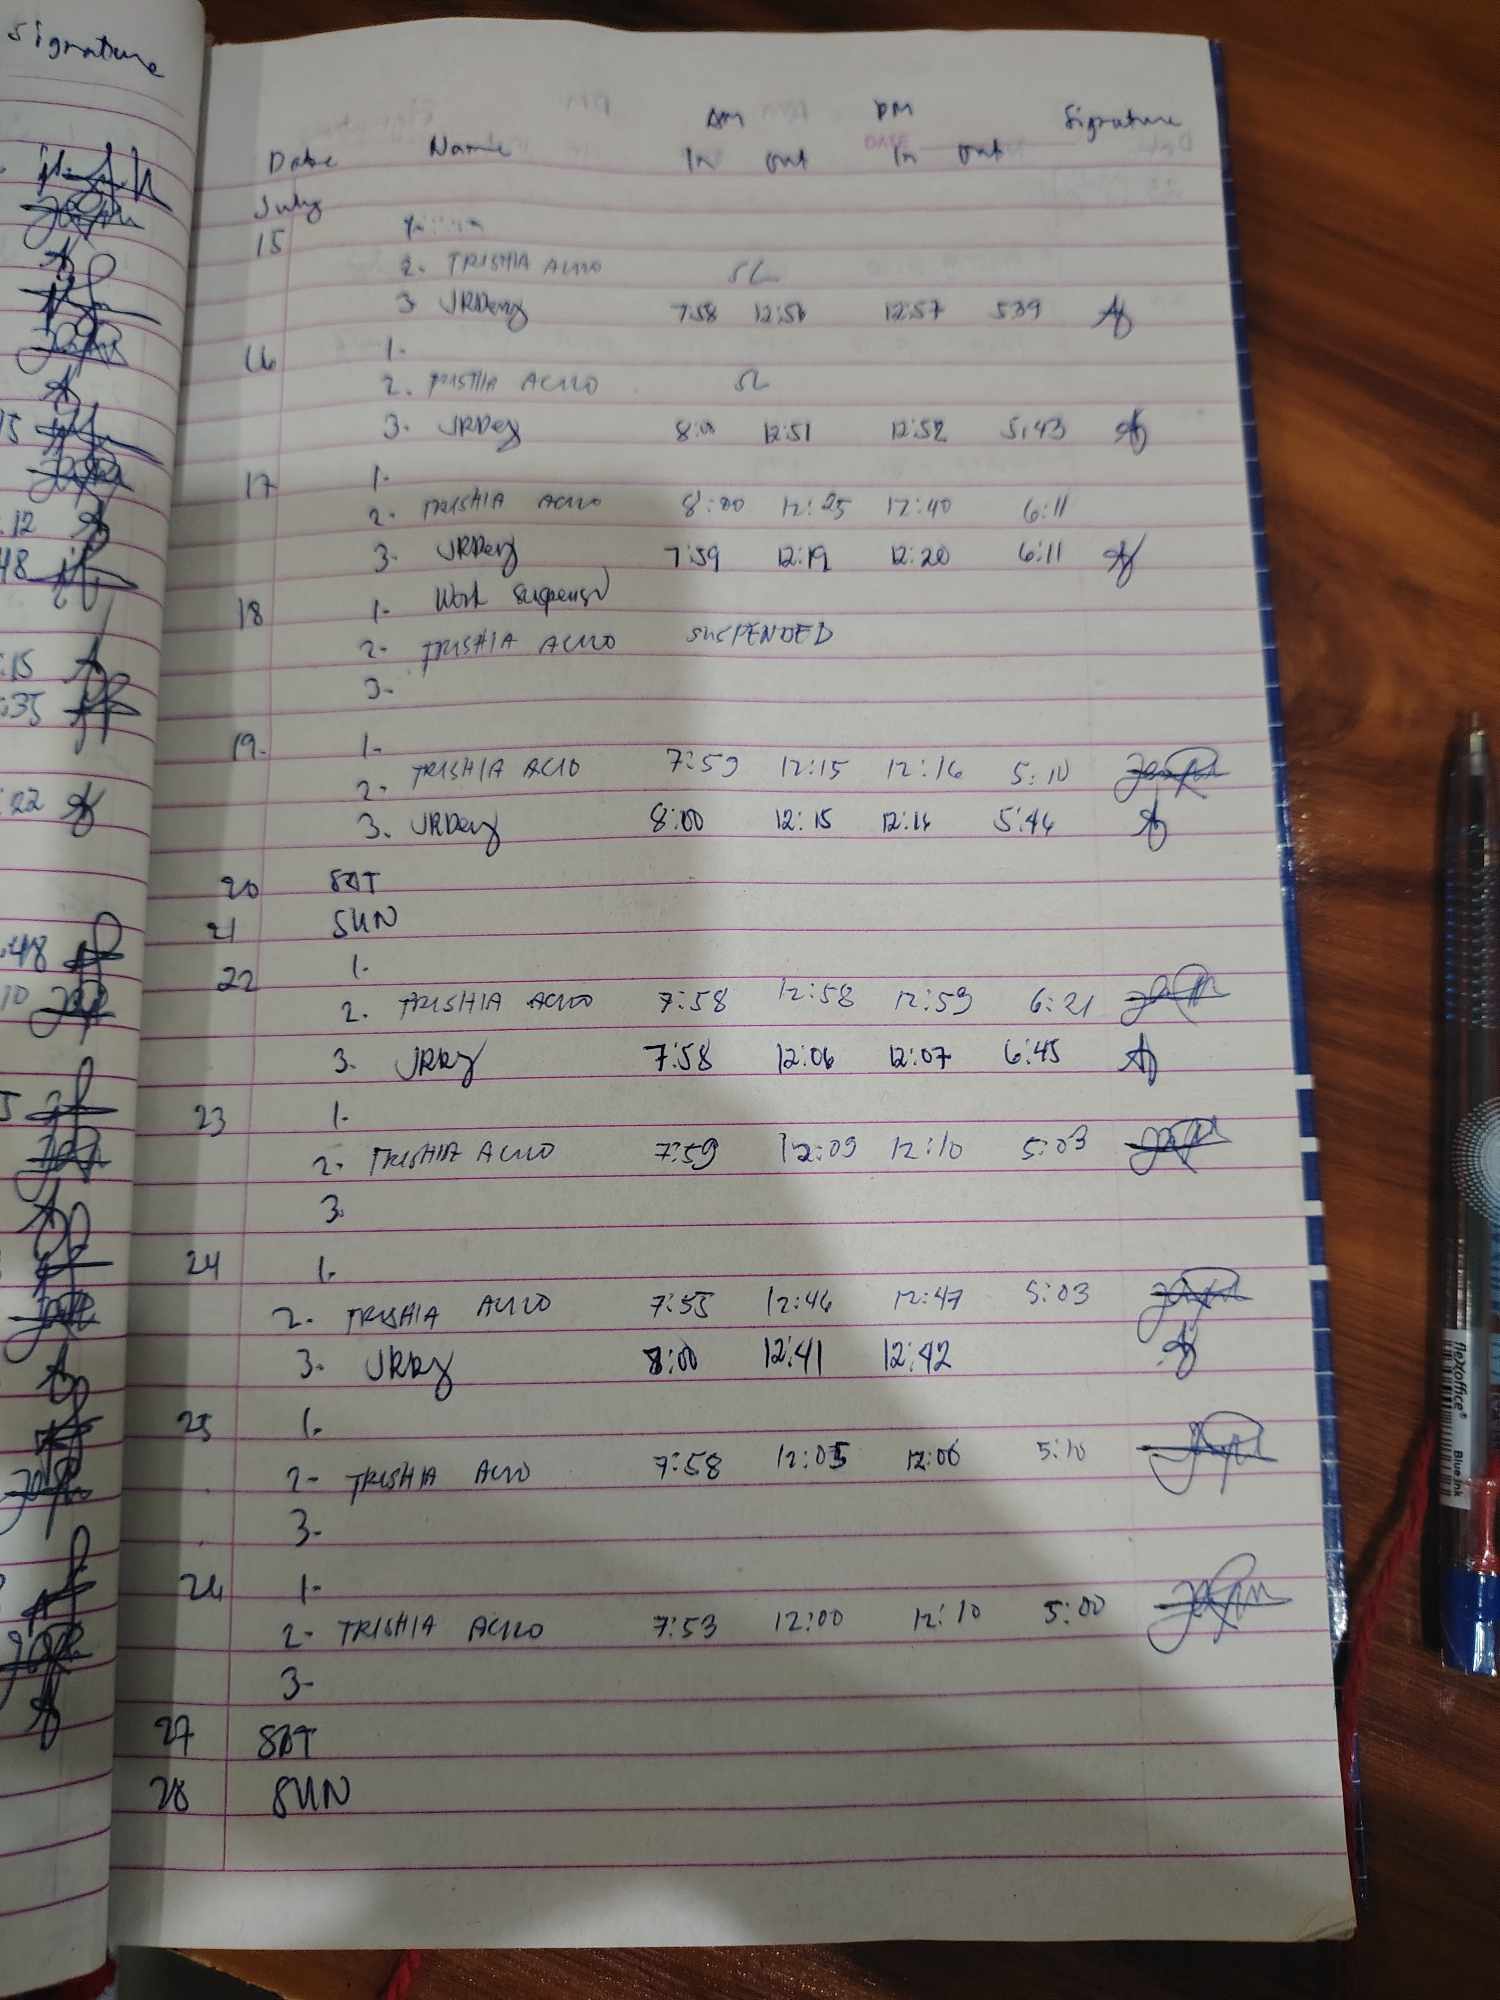 Signature
AM PM Signature
Date Name In Out In Out
July
15
2. TRISHIA ACIIO SL
3 7:58 12:56 12:57 5:39
16 1.
2. TRISHIA ACIIO SL
3. 8:00 12:51 12:52 5:43
17 1.
2. TRISHIA ACIIO 8:00 12:25 12:40 6:11
3. 7:59 12:19 12:20 6:11
18 1. Work
2. TRISHIA ACIIO SUSPENDED
3.
19. 1.
2. TRISHIA ACIIO 7:59 12:15 12:16 5:10
3. 8:00 12:15 12:16 5:46
20 SAT
21 SUN
22 1.
2. TRISHIA ACIIO 7:58 12:58 12:59 6:21
3. 7:58 12:06 12:07 6:45
23 1.
2. TRISHIA ACIIO 7:59 12:09 12:10 5:03
3.
24 1.
2. TRISHIA ACIIO 7:55 12:46 12:47 5:03
3. 8:00 12:41 12:42
25 1.
2- TRISHIA ACIIO 7:58 12:05 12:06 5:10
3-
26 1-
2- TRISHIA ACIIO 7:53 12:00 12:10 5:00
3-
27 SAT
28 SUN
15
:12
48
:15
:35
:22
:48
10
flexoffice® Blue ink